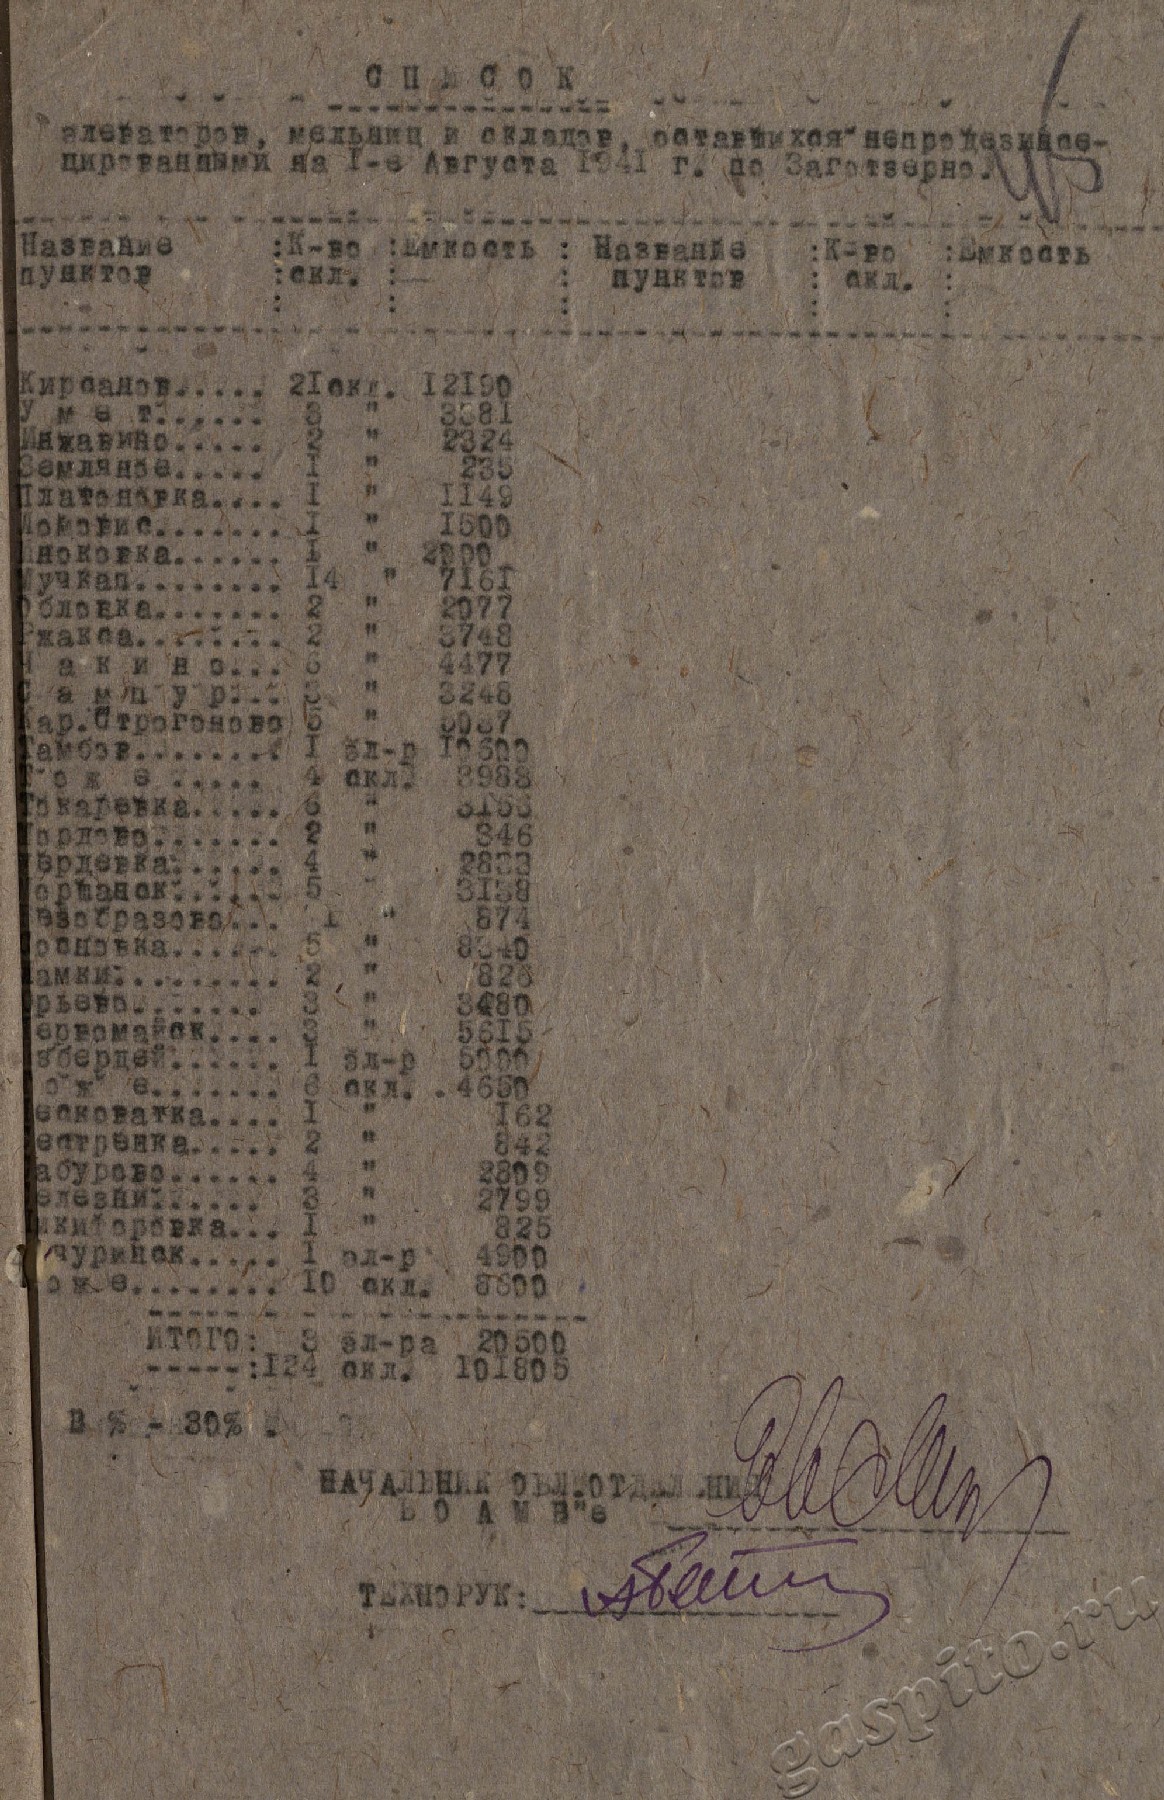 СПИСОК
элеваторов, мельниц и складов, оставшихся непродезинсе-
цированными на I-е Августа 1941 г. по Заготзерно.
Название :К-во :Емкость : Название :К-во :Емкость
пунктов :скл. : : пунктов : скл. :
Кирсанов..... 2Iскл. I2I90
У м е т...... 3 " 3381
Инжавино..... 2 " 2324
Земляное..... I " 235
Платоновка.... I " II49
Ломовис....... I " I500
Иноковка...... I " 2000
Мучкап........ I4 " 7I6I
Обловка....... 2 " 2077
Ржакса........ 2 " 3748
Ч а к и н о... 6 " 4477
С а м п у р... 3 " 3248
Кар.Строгоново 5 " 5037
Тамбов........ I эл-р I0600
Т о ж е ..... 4 скл. 3988
Токаревка..... 6 " 3I53
Мордово....... 2 " 346
Жердевка...... 4 " 2833
Моршанск...... 5 3I38
Безобразово... I " 874
Сосновка...... 5 " 8340
Ламки......... 2 " 826
Юрьево....... 3 " 3480
Первомайск.... 3 " 56I5
Избердей...... I эл-р 5000
То ж е....... 6 скл. .4650
Песковатка.... I " I62
Хместренка..... 2 " 842
Сабурово...... 4 " 2809
Селезни...... 3 " 2799
Никифоровка... I " 825
Мичуринск..... I эл-р 4900
Тоже........ I0 скл. 8600
ИТОГО: 3 эл-ра 20500
-----:I24 скл. I0I805
В % - 30% .
НАЧАЛЬНИК ОБЛ.ОТДЕЛ.НИЯ
В О А М Б"а
ТЕХНОРУК:
gaspito.ru